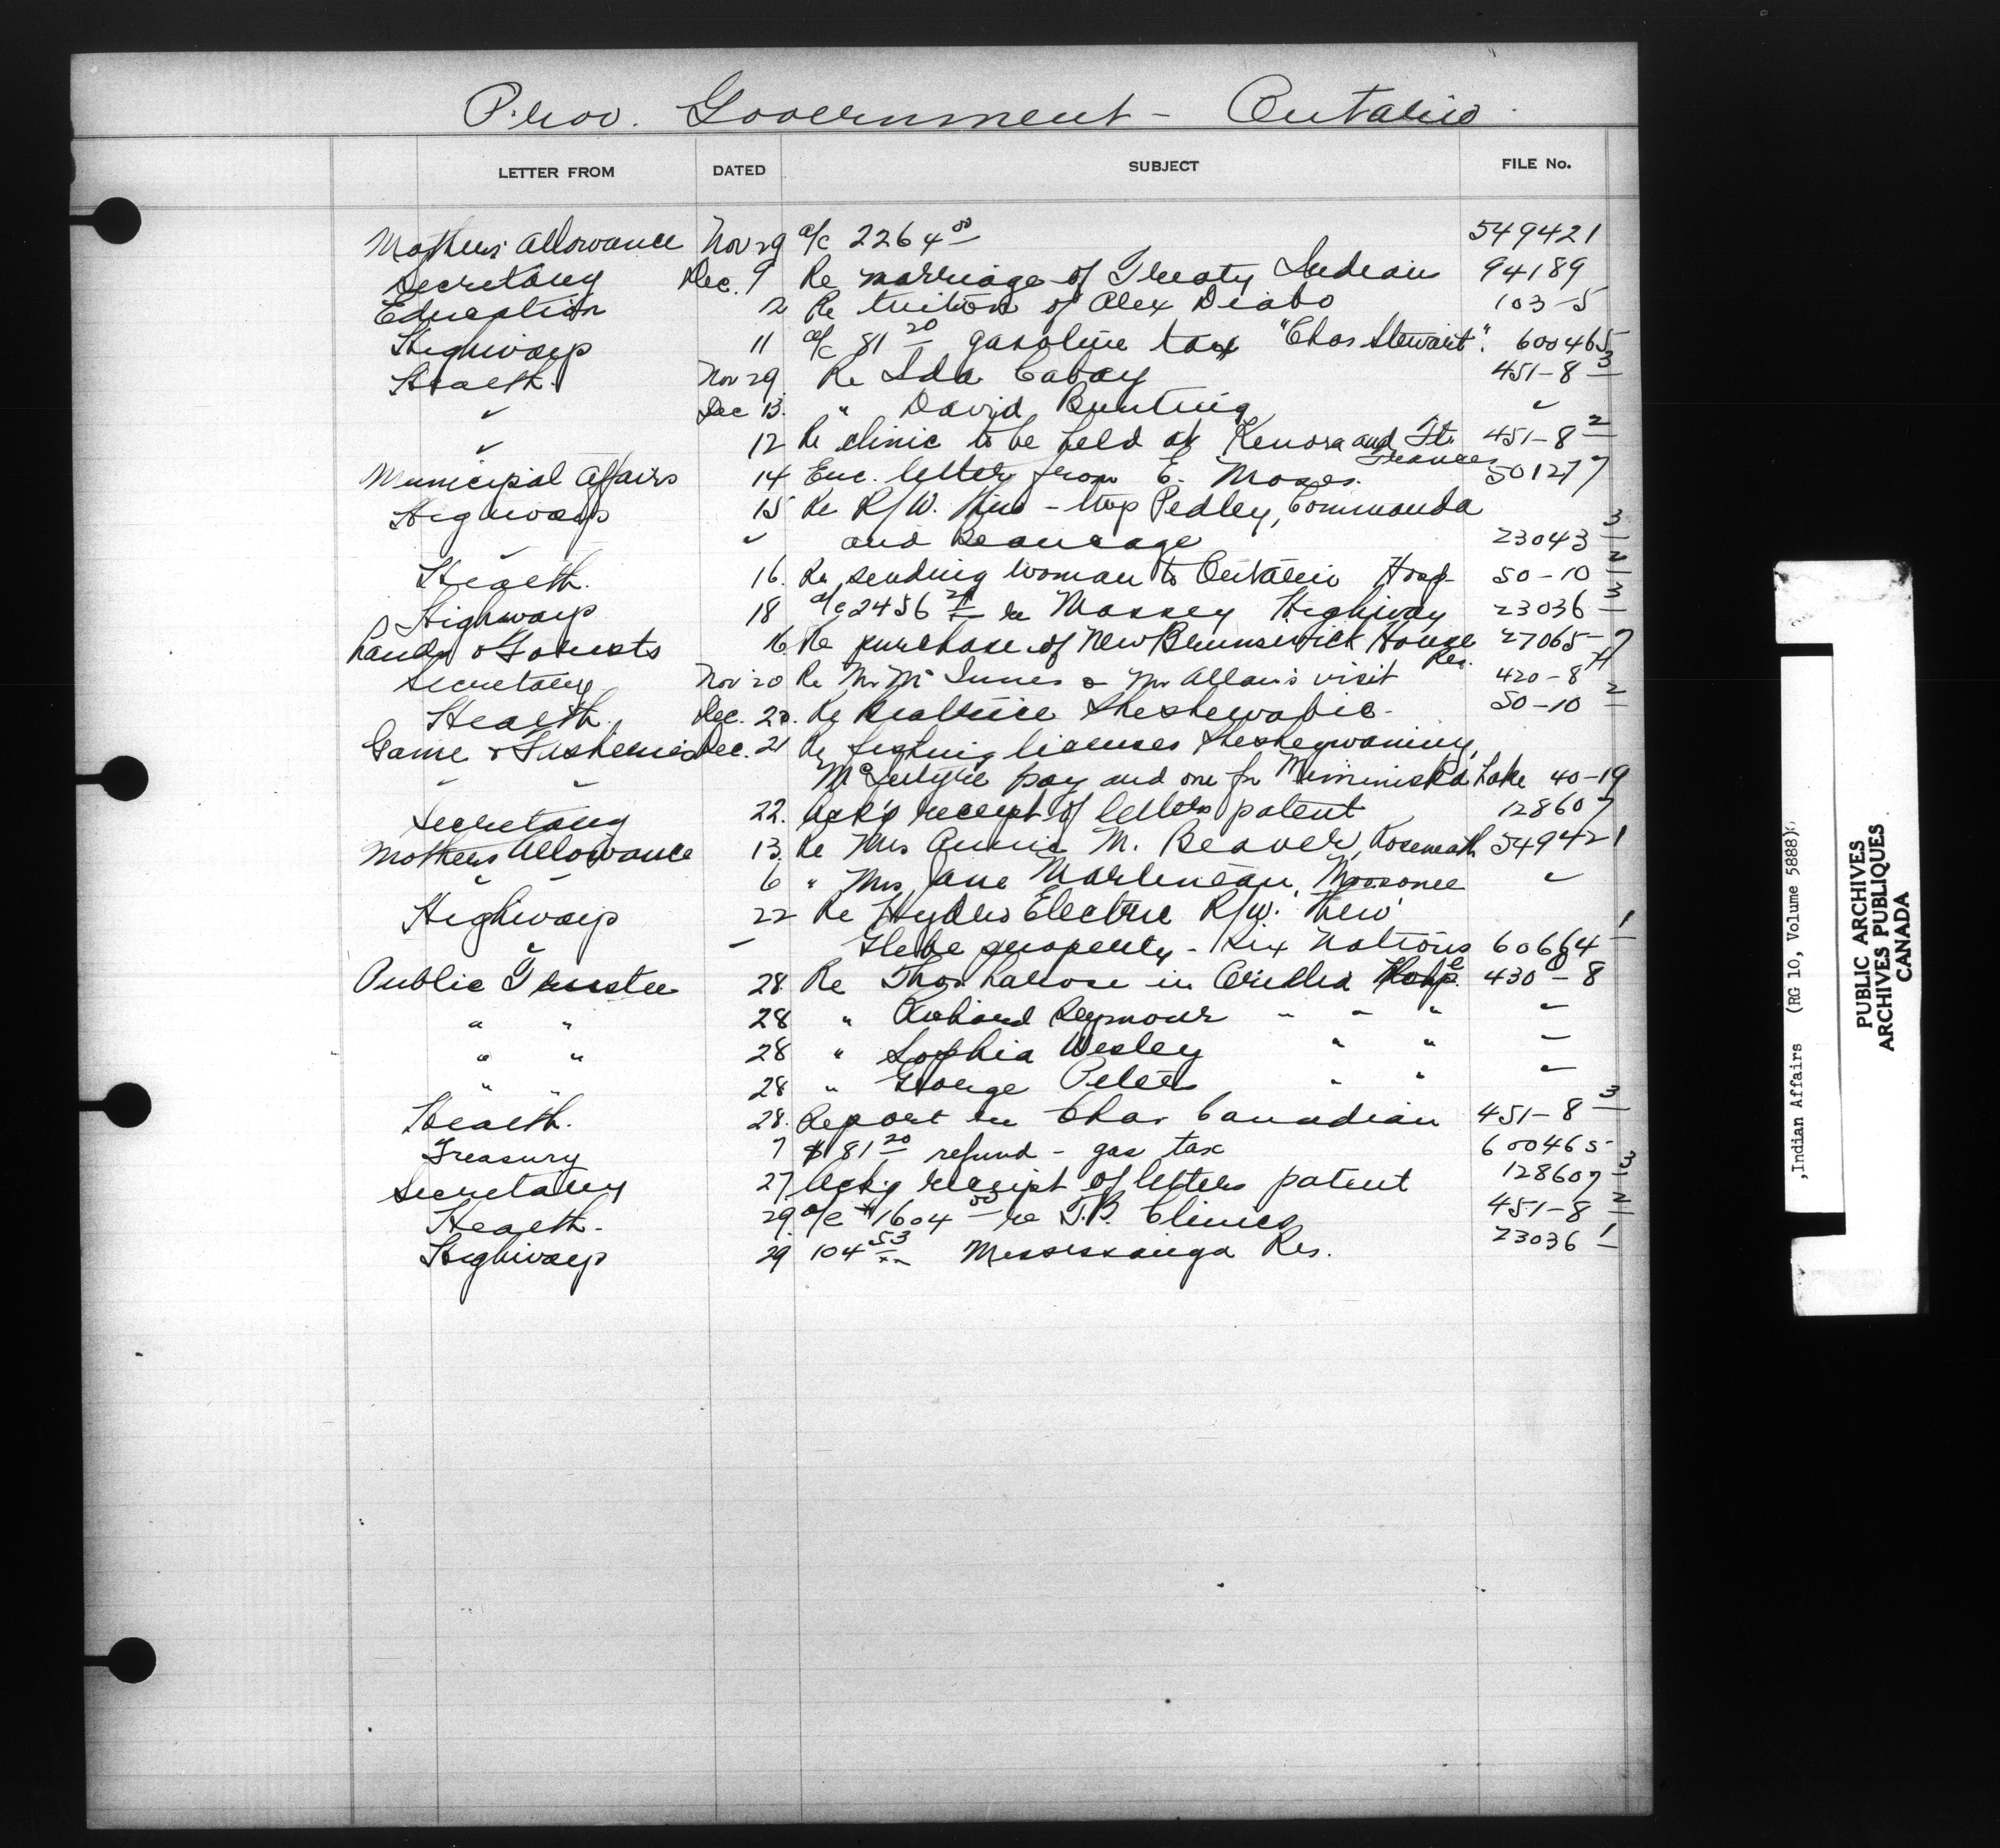 Prov. Government - Ontario
LETTER FROM DATED SUBJECT FILE No.
Mothers Allowance Nov 29 a/c 2264 00 549421
Secretary Dec. 9 Re marriage of Treaty Indian 94189
Education 12 Re tuition of Alex Diabo 103-5
Highways 11 a/c 81 20 gasoline tax "Chas Stewart". 600465
Health. Nov 29 Re Ida Cabay 451-8 3
" Dec 13. " David Bunting "
" 12 Re clinic to be held at Kenora and Ft. Frances 451-8 2
Municipal Affairs 14 Enc. letter from E. Moses. 50127-7
Highways 15 Re R/W. - Pedley, Commanda
" " and Beaucage 23043 3
Health. 16. Re sending woman to Ontario Hosp. 50-10 2
Highways 18 a/c 2456 21 re Massey Highway 23036 3
Lands & Forests 16 Re purchase of New Brunswick House Res. 27065-7
Secretary Nov 20 Re Mr McInnes & Mr Allan's visit 420-8 H
Health. Dec. 20. Re Beatrice Sheshewabic. 50-10 2
Game & Fisheries Dec. 21 Re fishing licenses Sheshegwaning,
" " McIntyre Bay and one for Miminiska Lake 40-19
Secretary 22. Ack'g receipt of letters patent 128607
Mothers Allowance 13. Re Mrs Annie M. Beaver, Roseneath 549421
" " 6 " Mrs Jane Martineau, Moosonee "
Highways 22 Re Hydro Electric R/W. Thew
" " Glebe property - Six Nations 60664 1
Public Trustee 28 Re Thos Larose in Orillia Hosp. 430-8
" " 28 " Richard Seymour " " " "
" " 28 " Sophia Wesley " " "
" " 28 " George Peters " " "
Health. 28. Report re Chas. Canadian 451-8 3
Treasury 7 $81 20 refund - gas tax 600465
Secretary 27. Ack'g receipt of letters patent 128607 3
Health. 29. a/c $1604 50 re T.B. Clinics 451-8 2
Highways 29 104 53 Mississauga Res. 23036 1
,Indian Affairs (RG 10, Volume 5888)
PUBLIC ARCHIVES
ARCHIVES PUBLIQUES
CANADA